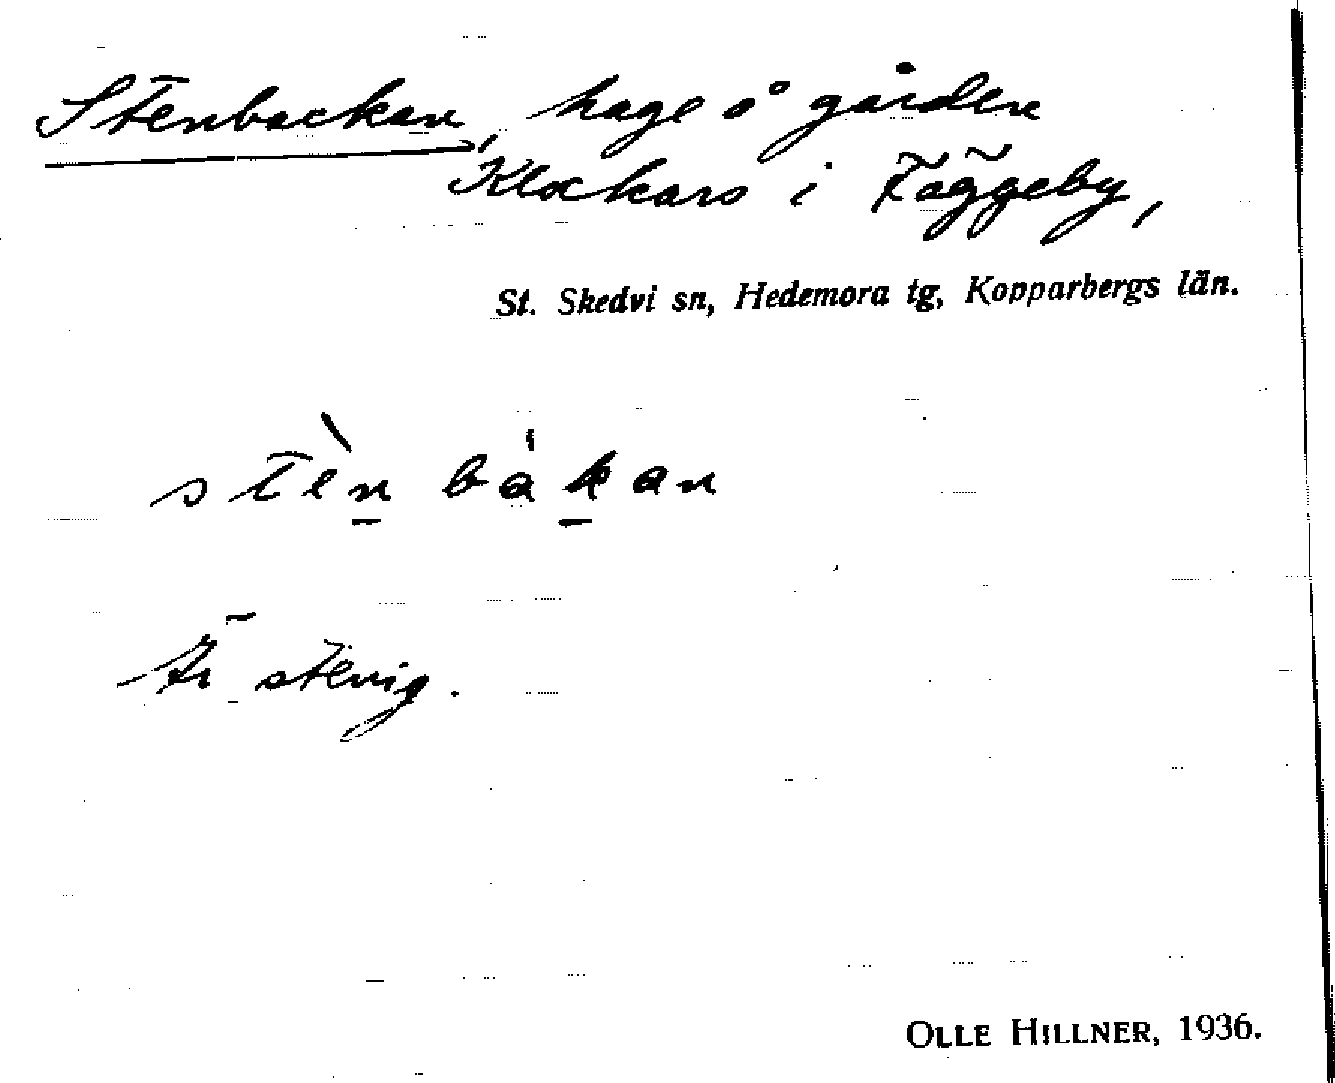 Stenbackan, hage å gården
Klockars i Täggeby,
St. Skedvi sn, Hedemora tg, Kopparbergs län.
stèn bákan
Är stenig.
OLLE HILLNER, 1936.